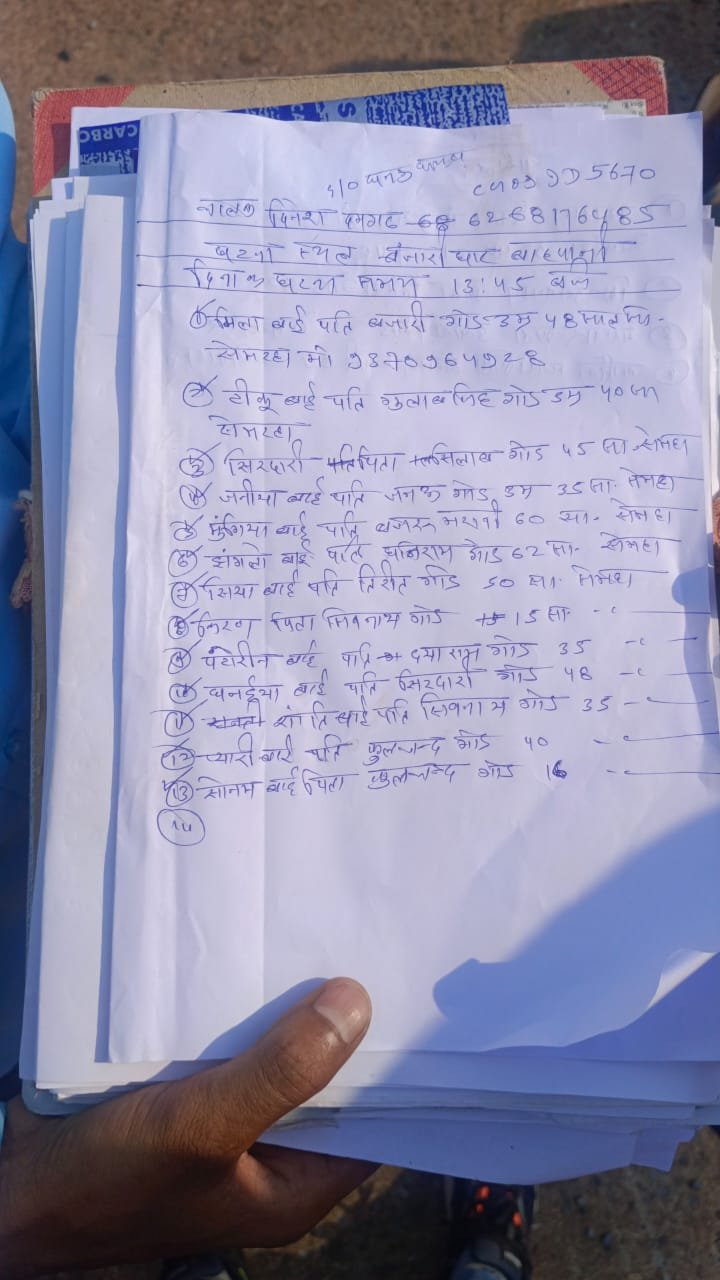 CARBO
S
CA
s/o जनक
CG03 JD5670
चालक दिनेश 6268176485
घटना स्थल बंजारी घाट
दिनांक घटना समय 13:45 बजे
① मिला बाई पति बजारी गोड उम्र 48 साल
सेमरहा मो 9370964928
② टीकू बाई पति गुलाब सिंह गोड उम्र 40 सा
सेमरहा
③ सिरदारी पिता गोड 45 सा. सेमरहा
④ जनीया बाई पति जनक गोड उम्र 35 सा. सेमरहा
⑤ मुंगिया बाई पति बजरू 60 सा. सेमरहा
⑥ बाई पति धनिराम गोड 62 सा. सेमरहा
⑦ सिया बाई पति गोड 50 सा. सेमरहा
⑧ किरण पिता सिवनाथ गोड 15 सा. -"-
⑨ बाई पति दयाराम गोड 35 -"-
⑩ बाई पति सिरदारी गोड 48 -"-
⑪ शांति बाई पति सिवनाथ गोड 35 -"-
⑫ प्यारी बाई पति फुलचन्द गोड 40 -"-
⑬ सोनम बाई पिता फुलचन्द गोड 16 -"-
⑭